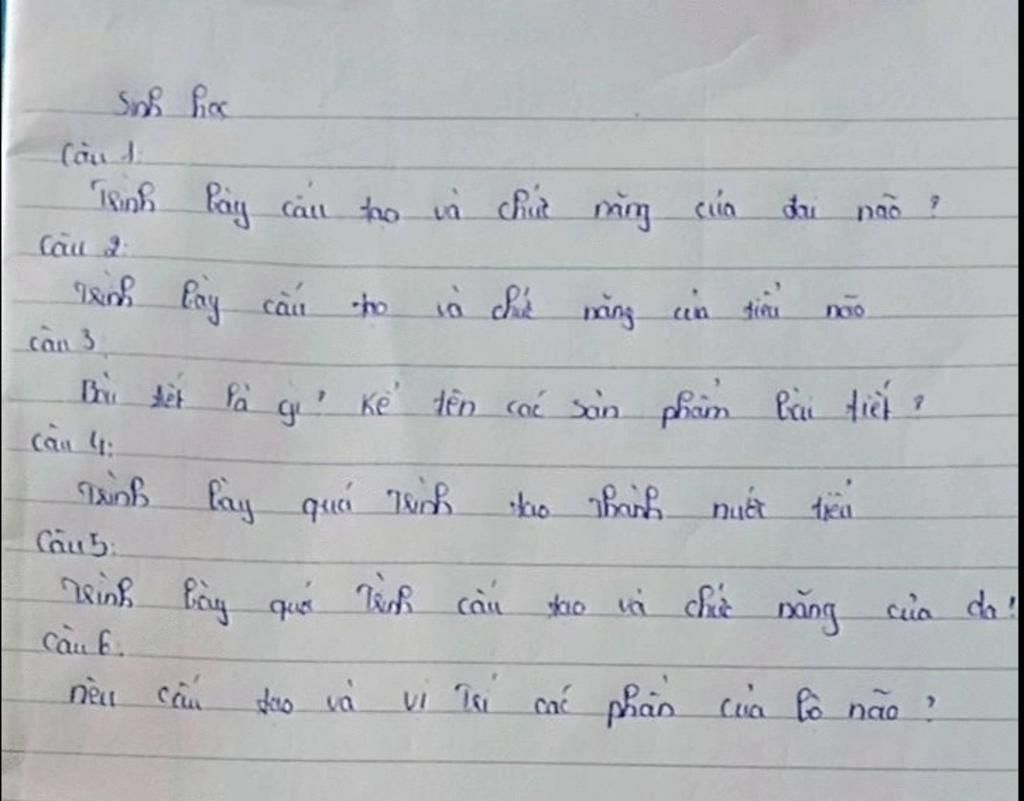 Sinh học
Câu 1:
Trình bày cấu tạo và chức năng của đại não ?
Câu 2:
Trình bày cấu tạo và chức năng của tiểu não
Câu 3:
Bài tiết là gì ? Kể tên các sản phẩm bài tiết ?
Câu 4:
Trình bày quá trình tạo thành nước tiểu
Câu 5:
Trình bày quá trình cấu tạo và chức năng của da !
Câu 6.
nêu cấu tạo và vị trí các phần của bộ não ?